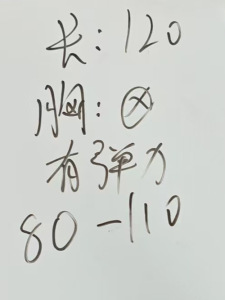 长：120
胸：⊗
有弹力
80-110